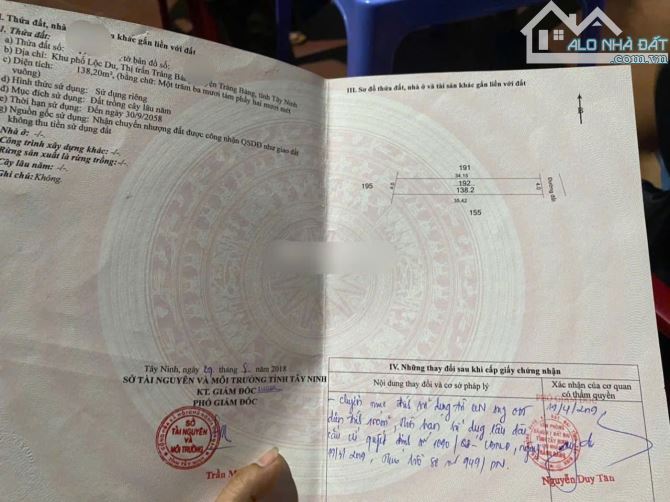 ALO NHÀ ĐẤT
Thửa đất, nhà khác gắn liền với đất
1. Thửa đất:
a) Thửa đất số: tờ bản đồ số:
b) Địa chỉ: Khu phố Lộc Du, Thị trấn Trảng Bàng, Trảng Bàng, tỉnh Tây Ninh
c) Diện tích: 138,20m², (bằng chữ: Một trăm ba mươi tám phẩy hai mươi mét
vuông)
d) Hình thức sử dụng: Sử dụng riêng
đ) Mục đích sử dụng: Đất trồng cây lâu năm
e) Thời hạn sử dụng: Đến ngày 30/9/2058
g) Nguồn gốc sử dụng: Nhận chuyển nhượng đất được công nhận QSDĐ như giao đất
không thu tiền sử dụng đất
Nhà ở: -/-
Công trình xây dựng khác: -/-
Rừng sản xuất là rừng trồng: -/-
Cây lâu năm: -/-
Ghi chú: Không.
Tây Ninh, ngày 29 tháng 5 năm 2018
SỞ TÀI NGUYÊN VÀ MÔI TRƯỜNG TỈNH TÂY NINH
KT. GIÁM ĐỐC
PHÓ GIÁM ĐỐC
SỞ
TÀI NGUYÊN
VÀ
MÔI TRƯỜNG
Trần M
III. Sơ đồ thửa đất, nhà ở và tài sản khác gắn liền với đất
B
191
34.15
195
192
138.2
4.0
Đường đất
35.42
155
IV. Những thay đổi sau khi cấp giấy chứng nhận
Nội dung thay đổi và cơ sở pháp lý
Xác nhận của cơ quan
có thẩm quyền
- Chuyển mục đích sử dụng từ CLN sang ODT
diện tích 100m², thời hạn sử dụng lâu dài
quyết định số
Nguyễn Duy Tân